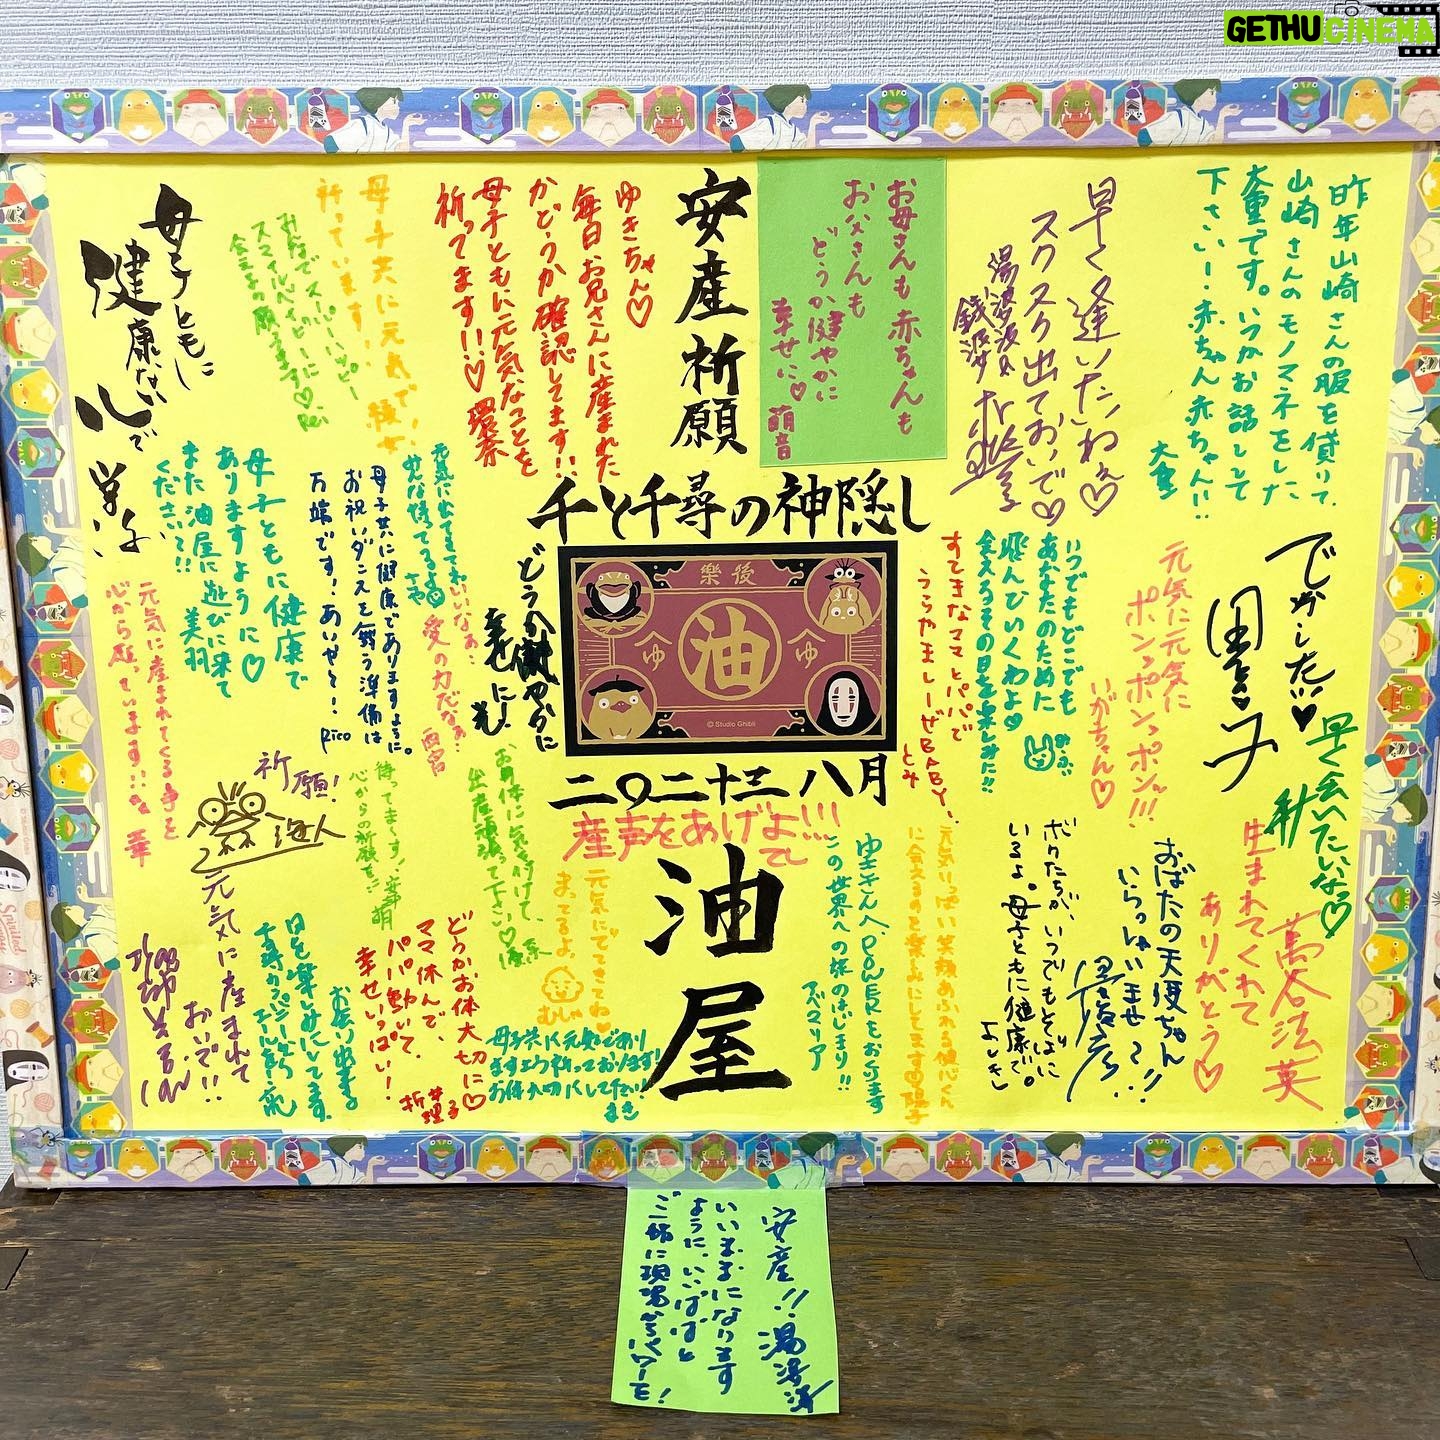 GETHU CINEMA
昨年山崎さんの服を借りて、
山崎さんのモノマネをした
大重です。いつかお話しして
下さい！赤ちゃん赤ちゃん!!
大重
早く逢いたいねぇ♡
スクスク出ておいで♡
湯婆婆&
銭婆
お母さんも赤ちゃんも
お父さんも
どうか健やかに
幸せに♡
萌音
安産祈願
ゆきちゃん♡
毎日お兄さんに産まれた
かどうか確認してます!!
母子ともに元気なことを
祈ってます!!♡ 環奈
母子共に元気で!!
祈っています！
みんなでスーパーハッピー
スマイルベイビーに
会える日を願ってます♡
Rei
母子ともに
健康ない
で
千と千尋の神隠し
樂後
油
ゆ
ゆ
© Studio Ghibli
二〇二十三 八月
産声をあげよ!!!
油屋
でかしたい♥
里子
早く会いたいなっ♡
元気に元気に
ポンっポンっポンッ!!!
いがちゃん♡
いつでもどこでも
あなたのために
飛んでいくわよ♥
会えるその日を楽しみに!!
すてきなママとパパで
うらやましーぜBABY!
とみ
どうか健やかに
幸せに！
元気に出てきてね
みんな待ってるよ
さや
いいなぁ…
愛の力だなぁ…
西宮
母子共に健康でありますように。
お祝いダンスを舞う準備は
万端です！あいやー！
Rico
母子ともに健康で
ありますように♡
また油屋に遊びに来て
ください!!
美羽
元気に産まれてくる事を
心から願っています!!
華
祈願！
海人
待ってまーす！
心からの祈願を!!
お身体に気を付けて、
出産頑張って下さい♡
生まれてくれて
ありがとう♡
高谷法英
おばたの天使ちゃん
いらっしゃいませ〜!!
ボクたちが、いつでもそばに
いるよ。母子ともに健康で。
よしモン
元気いっぱい笑顔あふれる健やくん
に会えるのを楽しみにしてます
陽子
ゆきさんへ、POWERをおくります
この世界への旅のはじまり!!
アバマリア
元気にでてきてね♡
まってるよ
むしゃ
母子共に元気であり
ますよう祈っております!
お体大切にして下さい!
まき
どうかお体大切に♡
ママ休んで、
パパ動いて。
幸せいっぱい！
お会い出来る
日を楽しみにしてます。
元気に産まれて
おいで!!
安産!!
湯婆婆
いいままになります
ように、いいばばと
ご一緒に現場からパワーを！